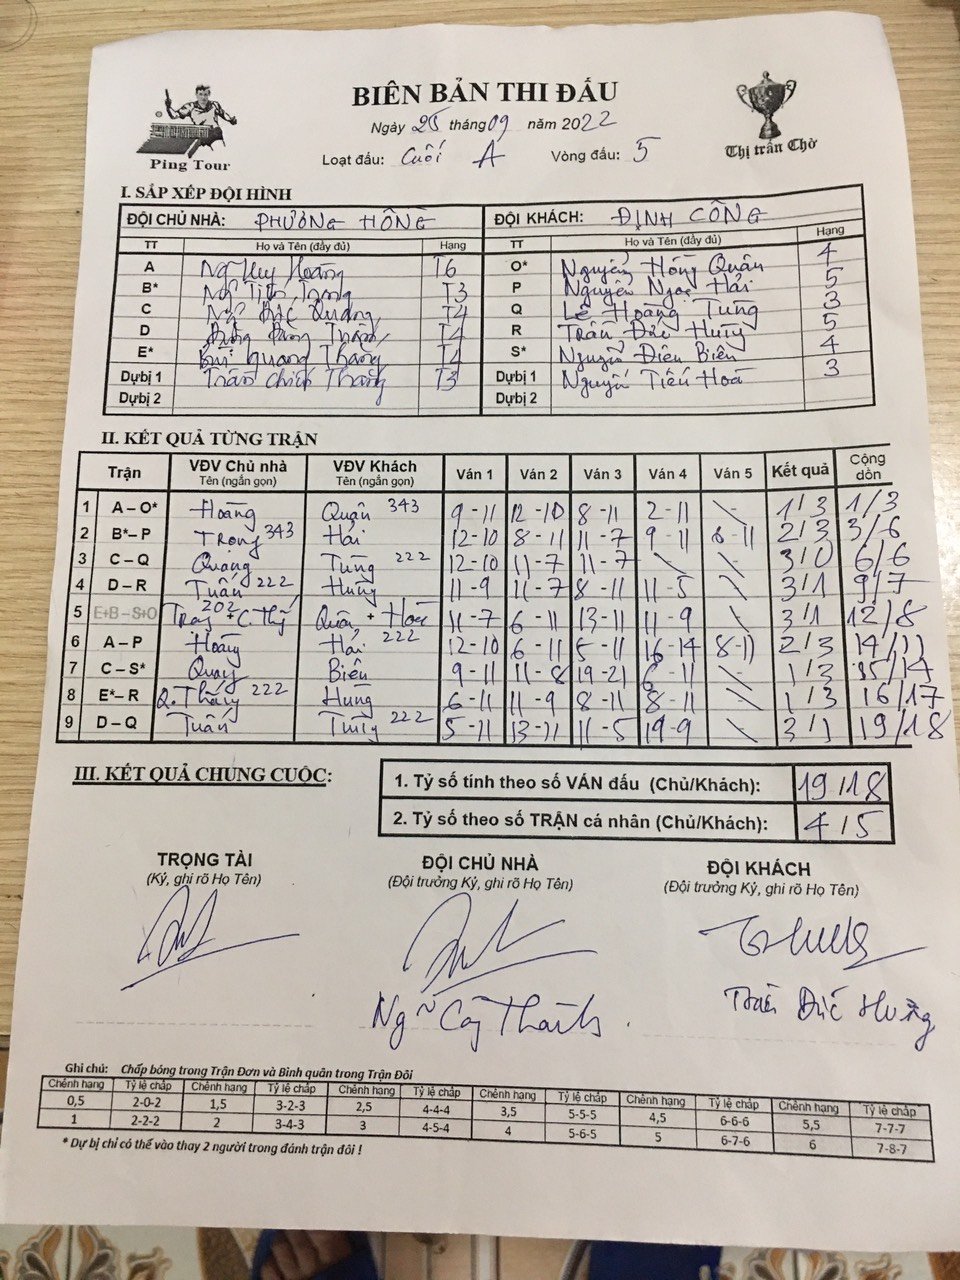 BIÊN BẢN THI ĐẤU
Ping Tour
Thị trấn Chờ
Ngày 25 tháng 09 năm 2022
Loạt đấu: Cuối A Vòng đấu: 5
I. SẮP XẾP ĐỘI HÌNH
ĐỘI CHỦ NHÀ: PHƯƠNG HỒNG ĐỘI KHÁCH: ĐỊNH CÔNG
TT Họ và Tên (đầy đủ) Hạng TT Họ và Tên (đầy đủ) Hạng
A Ng Huy Hoàng T6 O* Nguyễn Hồng Quân 4
B* Trọng T3 P Nguyễn Ngọc Hải 5
C Quang T4 Q Lê Hoàng Tùng 3
D T4 R Trần Đức Hưng 5
E* Bùi Quang Thắng S* Nguyễn Điên Biên 4
Dự bị 1 Trần Thắng T3 Dự bị 1 Nguyễn Tiến Hoà 3
Dự bị 2 Dự bị 2
II. KẾT QUẢ TỪNG TRẬN
Trận VĐV Chủ nhà Tên (ngắn gọn) VĐV Khách Tên (ngắn gọn) Ván 1 Ván 2 Ván 3 Ván 4 Ván 5 Kết quả Cộng dồn
1 A – O* Hoàng Quân 343 9 - 11 12 - 10 8 - 11 2 - 11 - 1 / 3 1 / 3
2 B* – P Trọng 343 Hải 12 - 10 8 - 11 11 - 7 9 - 11 8 - 11 2 / 3 3 / 6
3 C – Q Quang Tùng 222 12 - 10 11 - 7 11 - 7 3 / 0 6 / 6
4 D – R Tuấn 222 Hưng 11 - 9 11 - 7 8 - 11 11 - 5 3 / 1 9 / 7
5 E+B – S+O 202 Quân + Hoà 11 - 7 6 - 11 13 - 11 11 - 9 3 / 1 12 / 8
6 A – P Hoàng Hải 222 12 - 10 6 - 11 5 - 11 16 - 14 8 - 11 2 / 3 14 / 11
7 C – S* Quang Biên 9 - 11 11 - 8 19 - 21 6 - 11 1 / 3 15 / 14
8 E* – R Q. Thắng 222 Hưng 6 - 11 11 - 9 8 - 11 8 - 11 1 / 3 16 / 17
9 D – Q Tuấn Tùng 222 5 - 11 13 - 11 11 - 5 3 / 1 19 / 18
III. KẾT QUẢ CHUNG CUỘC:
1. Tỷ số tính theo số VÁN đấu (Chủ/Khách): 19 / 18
2. Tỷ số theo số TRẬN cá nhân (Chủ/Khách): 4 / 5
TRỌNG TÀI ĐỘI CHỦ NHÀ ĐỘI KHÁCH
(Ký, ghi rõ Họ Tên) (Đội trưởng Ký, ghi rõ Họ Tên) (Đội trưởng Ký, ghi rõ Họ Tên)
Thành Trần Đức Hưng
Ghi chú: Chấp bóng trong Trận Đơn và Bình quân trong Trận Đôi
Chênh hạng Tỷ lệ chấp Chênh hạng Tỷ lệ chấp Chênh hạng Tỷ lệ chấp Chênh hạng Tỷ lệ chấp Chênh hạng Tỷ lệ chấp Chênh hạng Tỷ lệ chấp
0,5 2-0-2 1,5 3-2-3 2,5 4-4-4 3,5 5-5-5 4,5 6-6-6 5,5 7-7-7
1 2-2-2 2 3-4-3 3 4-5-4 4 5-6-5 5 6-7-6 6 7-8-7
* Dự bị chỉ có thể vào thay 2 người trong đánh trận đôi !